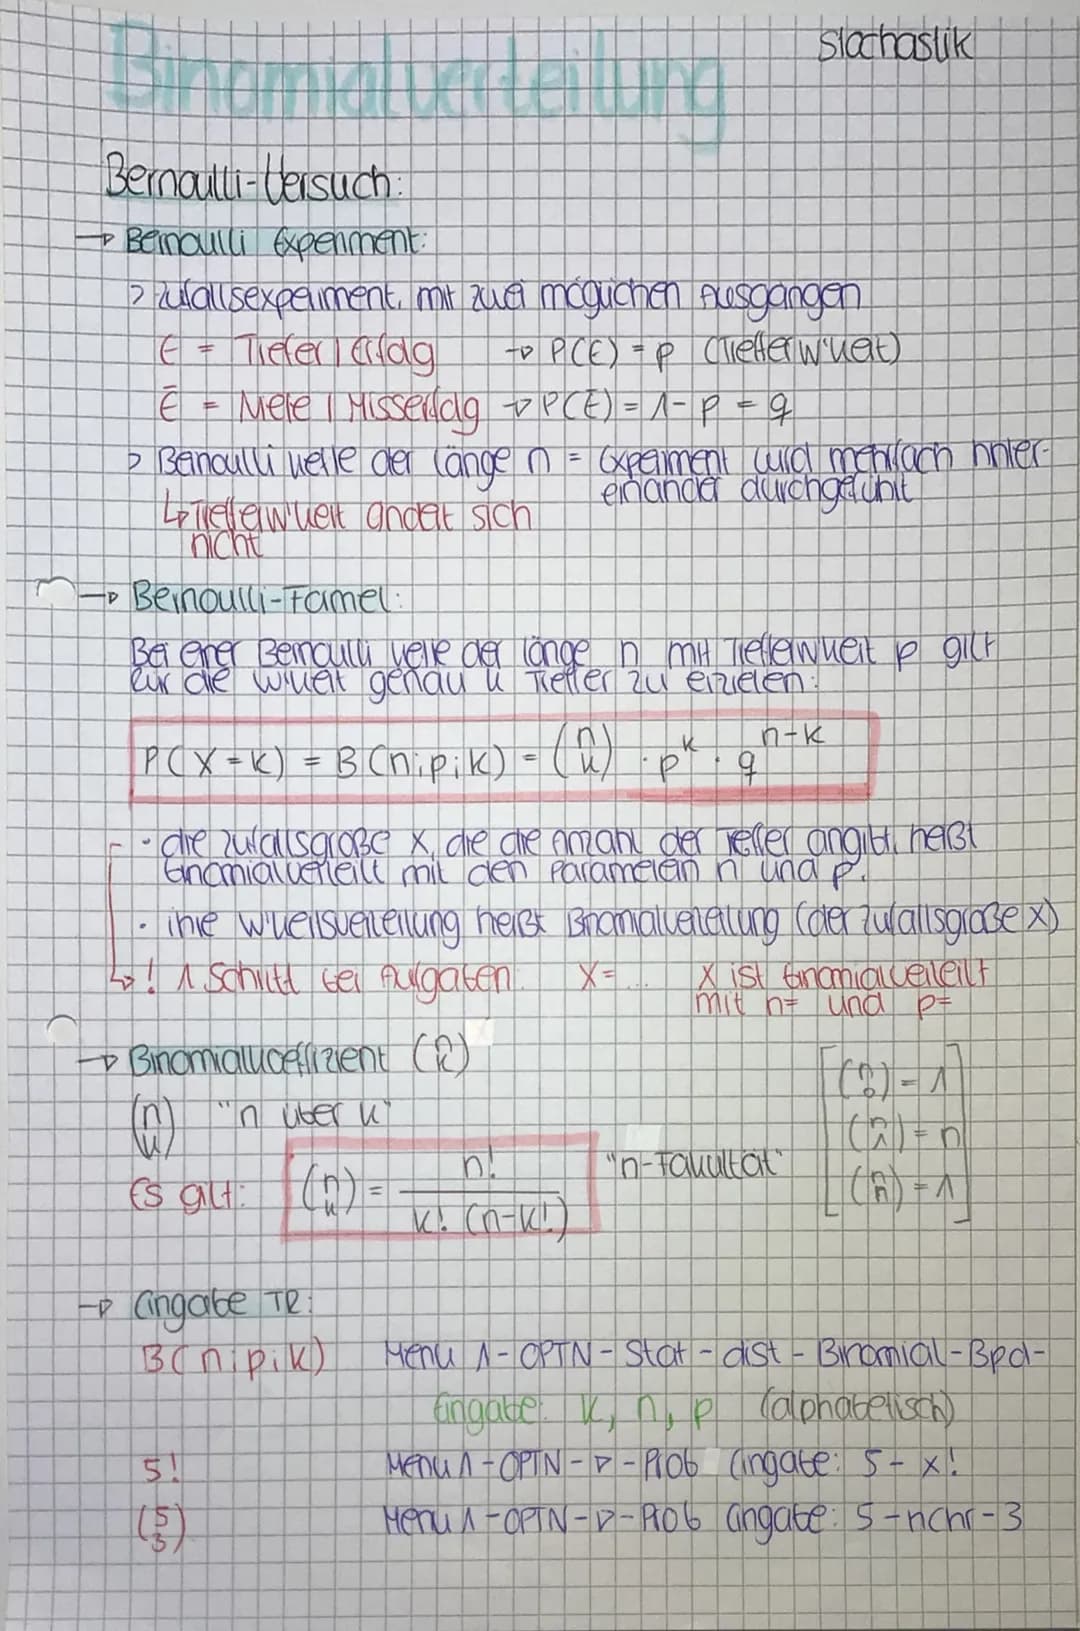 Stochastik
Binomialverteilung
Bernoulli-Versuch:
→ Bernoulli Experiment:
> Zufallsexperiment, mit zwei möglichen Ausgängen
E = Treffer / Erfolg → P(E) = p (Trefferw'keit)
Ē = Niete / Misserfolg → P(Ē) = 1 - p = q
> Bernoulli kette der länge n = Experiment wird mehrfach hinter-
einander durchgeführt
↳ Trefferw'keit ändert sich
nicht
→ Bernoulli-Formel:
Bei einer Bernoulli kette der länge n mit Trefferwkeit p gilt
für die w'keit genau k Treffer zu erzielen:
P(X=k) = B(n;p;k) = (n k) · p^k · q^(n-k)
· die Zufallsgröße X, die die Anzahl der Treffer angibt, heißt
binomialverteilt mit den Parametern n und p.
· ihre w'keitsverteilung heißt Binomialverteilung (der Zufallsgröße X)
↳ ! 1 Schritt bei Aufgaben: X=... X ist binomialverteilt
mit n= und p=
→ Binomialkoeffizient (n k)
(n k) "n über k"
[(n 0) = 1
(n 1) = n
(n n) = 1]
Es gilt: (n k) = n! / k! (n-k!) "n-Fakultät"
→ Eingabe TR:
B(n;p;k) Menu 1 - OPTN - Stat - dist - Binomial - Bpd -
Eingabe: k, n, p (alphabetisch)
5! Menu 1 - OPTN - ▷ - Prob Eingabe: 5 - x!
(5 3) Menu 1 - OPTN - ▷ - Prob Eingabe: 5 - nchr - 3